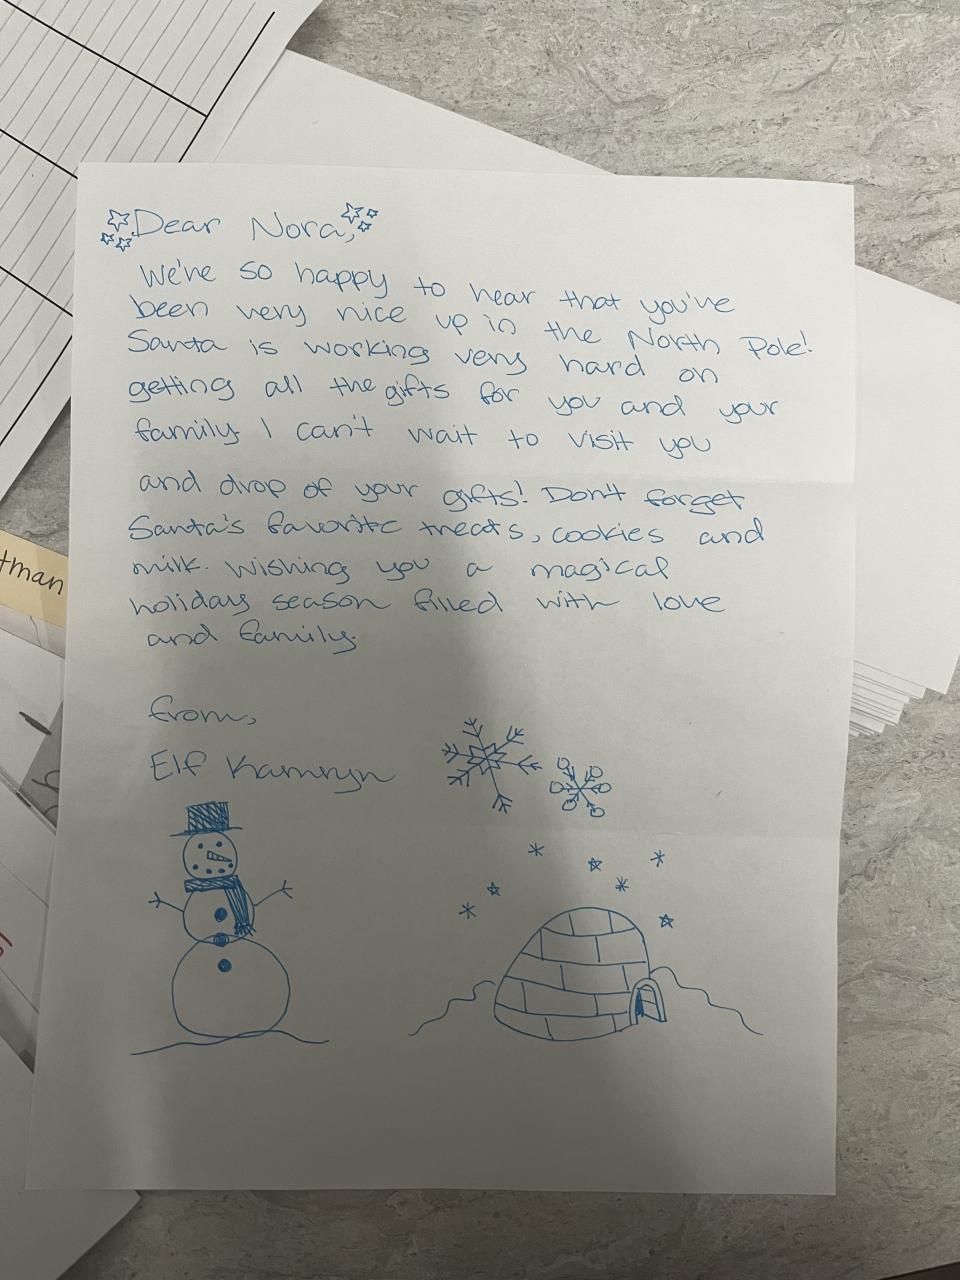 Dear Nora,
We've so happy to hear that you've
been very nice up in the North Pole!
Santa is working very hard on
getting all the gifts for you and your
family. I can't wait to visit you
and drop of your gifts! Don't forget
Santa's favorite treats, cookies and
milk. Wishing you a magical
holiday season filled with love
and family.
from,
Elf Kamryn
tman